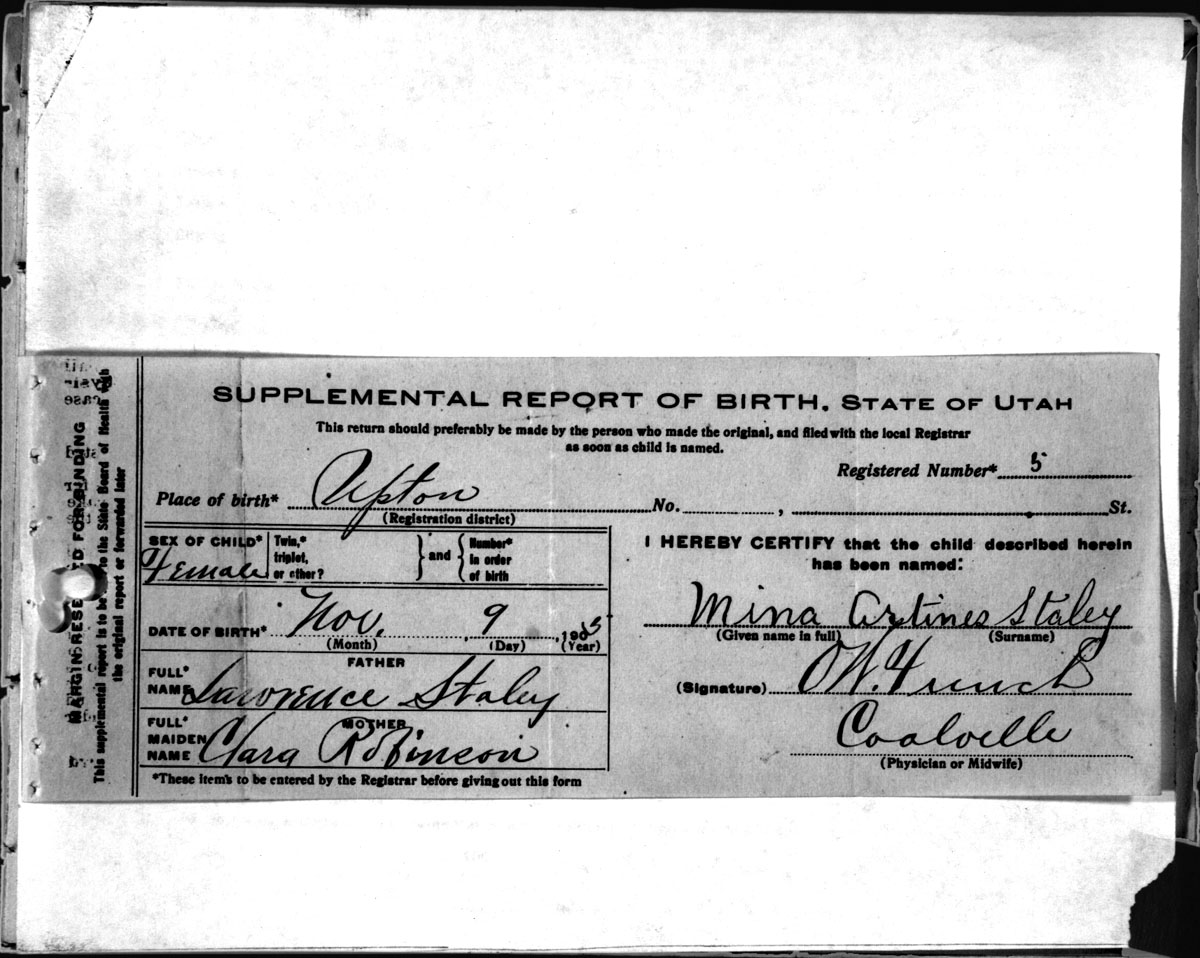 SUPPLEMENTAL REPORT OF BIRTH. STATE OF UTAH
This return should preferably be made by the person who made the original, and filed with the local Registrar
as soon as child is named.
Registered Number* 5
Place of birth* Upton No. , St.
(Registration district)
SEX OF CHILD* Female
Twin,* triplet, or other? } and { Number* in order of birth
DATE OF BIRTH* Nov. , 9 , 1905
(Month) (Day) (Year)
FATHER
FULL* NAME Lawrence Staley
MOTHER
FULL* MAIDEN NAME Clara Robinson
*These item's to be entered by the Registrar before giving out this form
I HEREBY CERTIFY that the child described herein
has been named:
Mina Artines Staley
(Given name in full) (Surname)
(Signature) O W. Frunck
Coalville
(Physician or Midwife)
MARGIN RESERVED FOR BINDING
This supplemental report is to be to the State Board of Health with
the original report or forwarded later